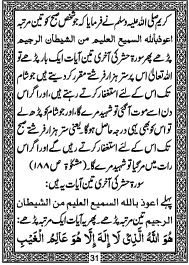 کریم صلی اللہ علیہ وسلم نے فرمایا کہ جو شخص صبح کو تین مرتبہ
اعوذ باللہ السمیع العلیم من الشیطان الرجیم
پڑھے پھر سورۂ حشر کی آخری تین آیات ایک بار پڑھے تو
اللہ تعالیٰ اس پر ستر ہزار فرشتے مقرر کر دیتے ہیں جو شام
تک اس کے لئے استغفار کرتے ہیں اور اگر اس دن میں اس
کی موت آگئی تو شہید مرے گا۔ اور جو شخص شام کو پڑھ لے
تو اس کو بھی یہی درجہ حاصل ہوگا۔ یعنی ستر ہزار فرشتے صبح
تک اس کے لئے استغفار کرتے رہیں گے اور اگر اس
رات میں مر گیا تو شہید مرے گا۔ (مشکوٰۃ ص ۱۸۸)
سورۂ حشر کی آخری تین آیات یہ ہیں:
پہلے اعوذ باللہ السمیع العلیم من الشیطان
الرجیم تین مرتبہ پڑھے پھر یہ آیات ایک مرتبہ پڑھے:
هُوَ اللّٰهُ الَّذِیْ لَا اِلٰهَ اِلَّا هُوَ عَالِمُ الْغَیْبِ
31